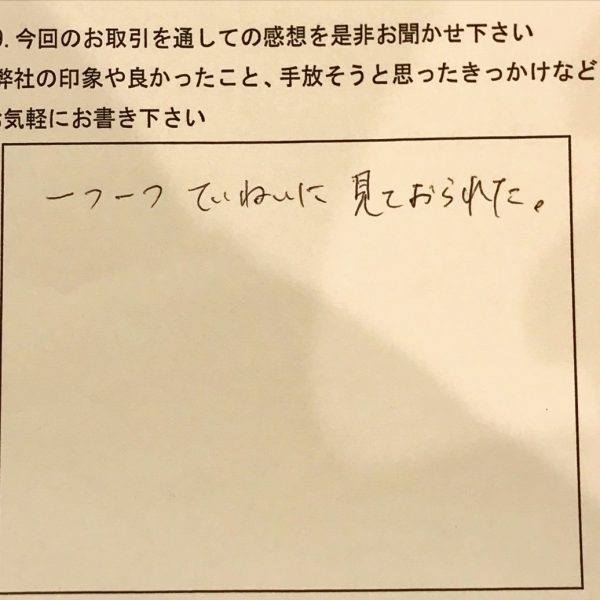 9. 今回のお取引を通しての感想を是非お聞かせ下さい
弊社の印象や良かったこと、手放そうと思ったきっかけなど
お気軽にお書き下さい
一つ一つ ていねいに 見ておられた。